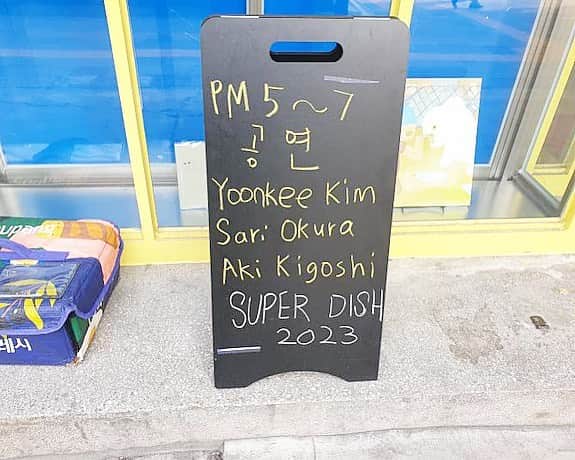 PM 5~7
공연
Yoonkee Kim
Sari Okura
Aki Kigoshi
SUPER DISH
2023
레시